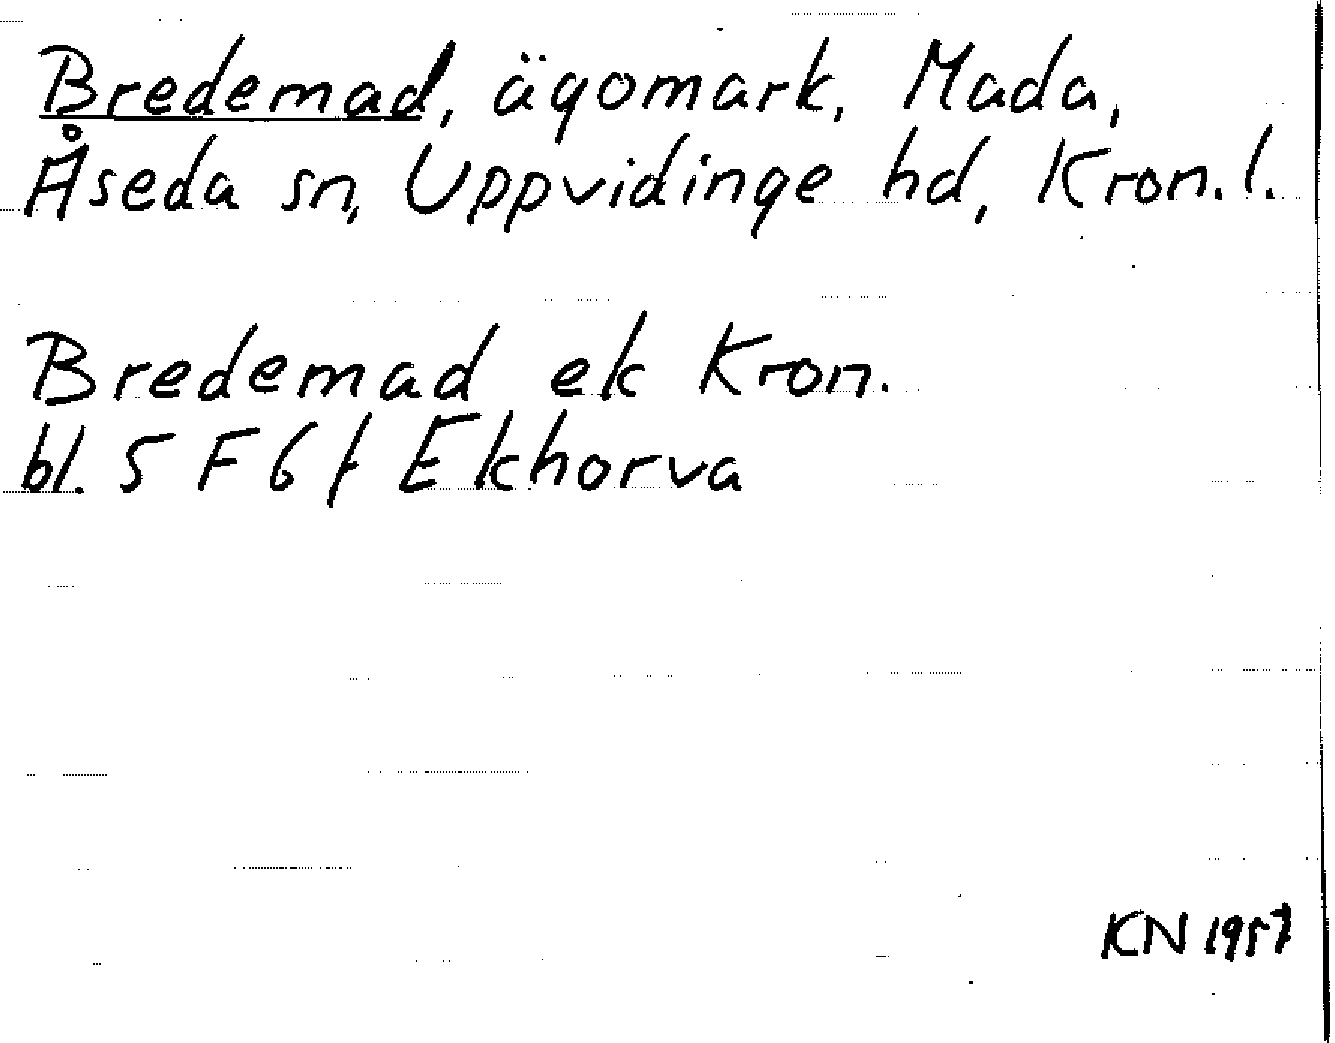 Bredemad, ägomark, Mada,
Åseda sn, Uppvidinge hd, Kron. l.
Bredemad ek Kron.
bl. 5 F 6 f Ekhorva
KN 1957